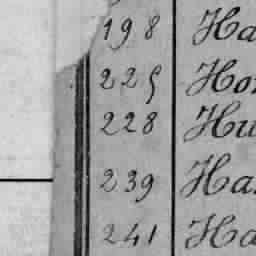 198 Ha
225 Hor
228 Hu
239 Ha
241 Ha